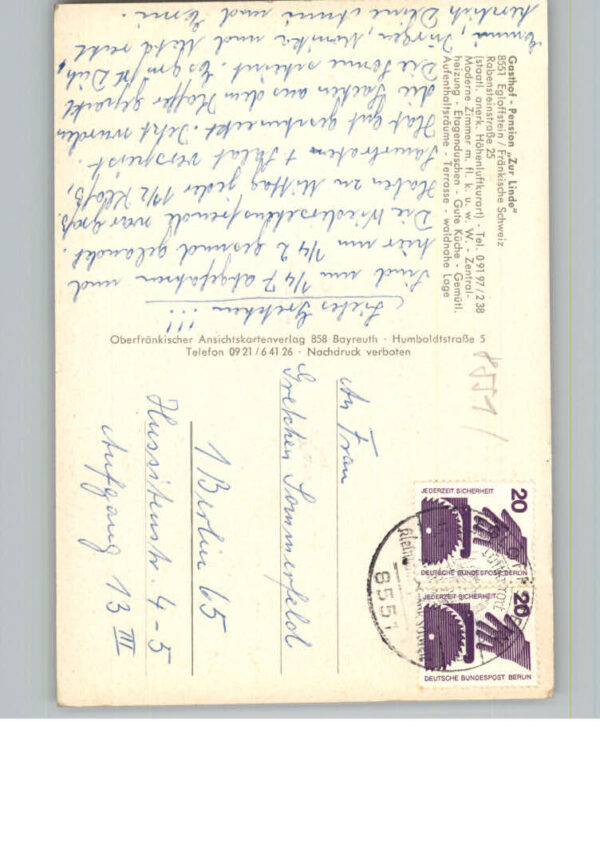 Gasthof - Pension „Zur Linde"
8551 Egloffstein / Fränkische Schweiz
Rabensteinstraße 25
(staatl. anerk. Höhenluftkurort) - Tel. 0 91 97 / 2 38
Moderne Zimmer m. fl. k. u. w. W. - Zentral-
heizung - Etagenduschen - Gute Küche - Gemütl.
Aufenthaltsräume - Terrasse - waldnahe Lage
Liebes Gretchen !!!
Sind um 1/4 7 abgefahren und
hier um 1/4 2 gesund gelandet.
Die Wiedersehensfreude war groß.
Haben zu Mittag jeder 1 1/2 Klöße,
Sauerbraten + Salat verspeist.
Hat gut geschmeckt. Jetzt wurden
die Sachen aus dem Koffer gepackt
Die Sonne scheint. Es grüßt Dich
Jürgen, Monika und Metd recht
herzlich Deine Anni und Erni
Oberfränkischer Ansichtskartenverlag 858 Bayreuth · Humboldtstraße 5
Telefon 09 21 / 6 41 26 · Nachdruck verboten
8551
An Frau
Gretchen Sommerfeld
1 Berlin 65
Hussitenstr. 4-5
Aufgang 13 III
JEDERZEIT SICHERHEIT
20
DEUTSCHE BUNDESPOST BERLIN
JEDERZEIT SICHERHEIT
20
DEUTSCHE BUNDESPOST BERLIN
8551